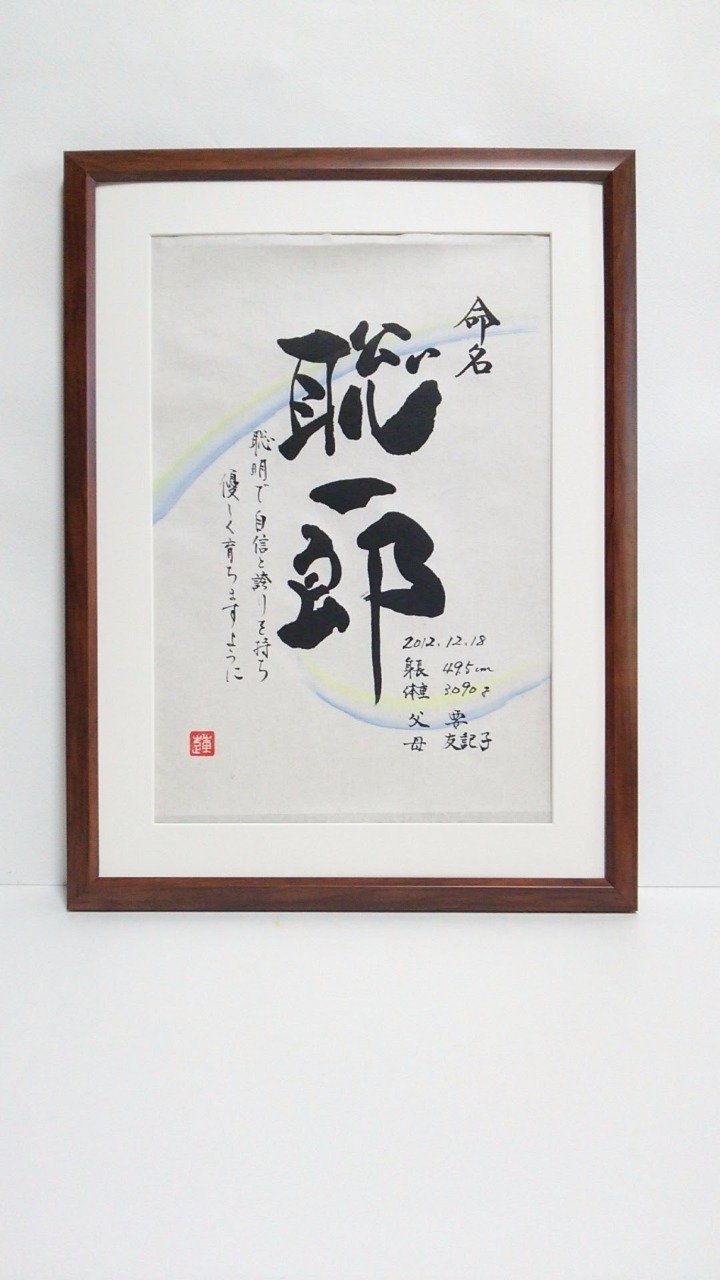 命名
聡一郎
聡明で自信と誇りを持ち
優しく育ちますように
2012.12.18
身長 49.5cm
体重 3090g
父 要
母 友記子
蓮